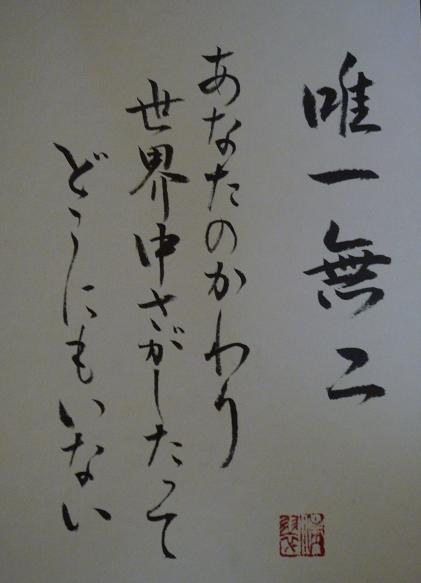 唯一無二
あなたのかわり
世界中さがしたって
どこにもいない